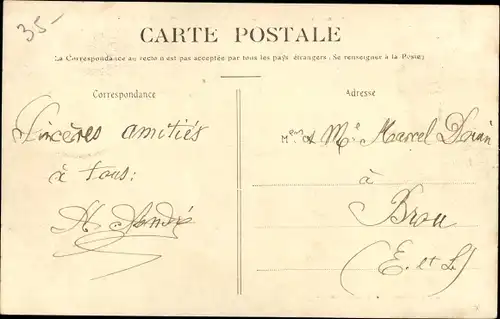 35-
CARTE POSTALE
La Correspondance au recto n'est pas acceptée par tous les pays étrangers (Se renseigner à la Poste)
Correspondance
Adresse
Sincères amitiés
à tous:
M et Mme Marcel
à
Brou
(E. et L.)